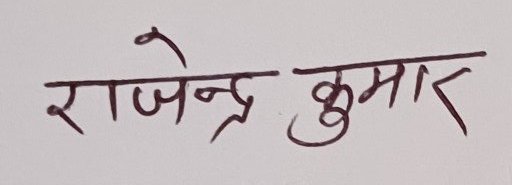 राजेन्द्र कुमार